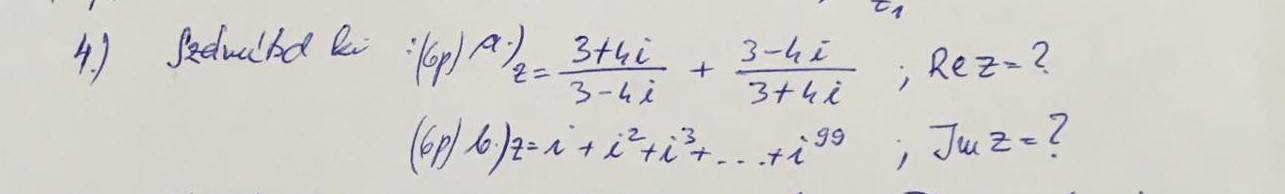 4.) Számítsd ki : (6p) a.) z = \frac{3+4i}{3-4i} + \frac{3-4i}{3+4i} ; Re z = ?
(6p) b.) z = i + i^2 + i^3 + ... + i^{99} ; Im z = ?